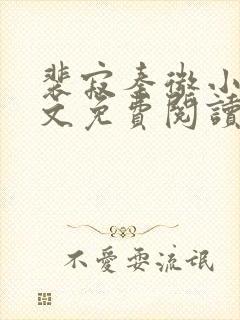 裴寂秦微小
文免費閱讀
不愛耍流氓